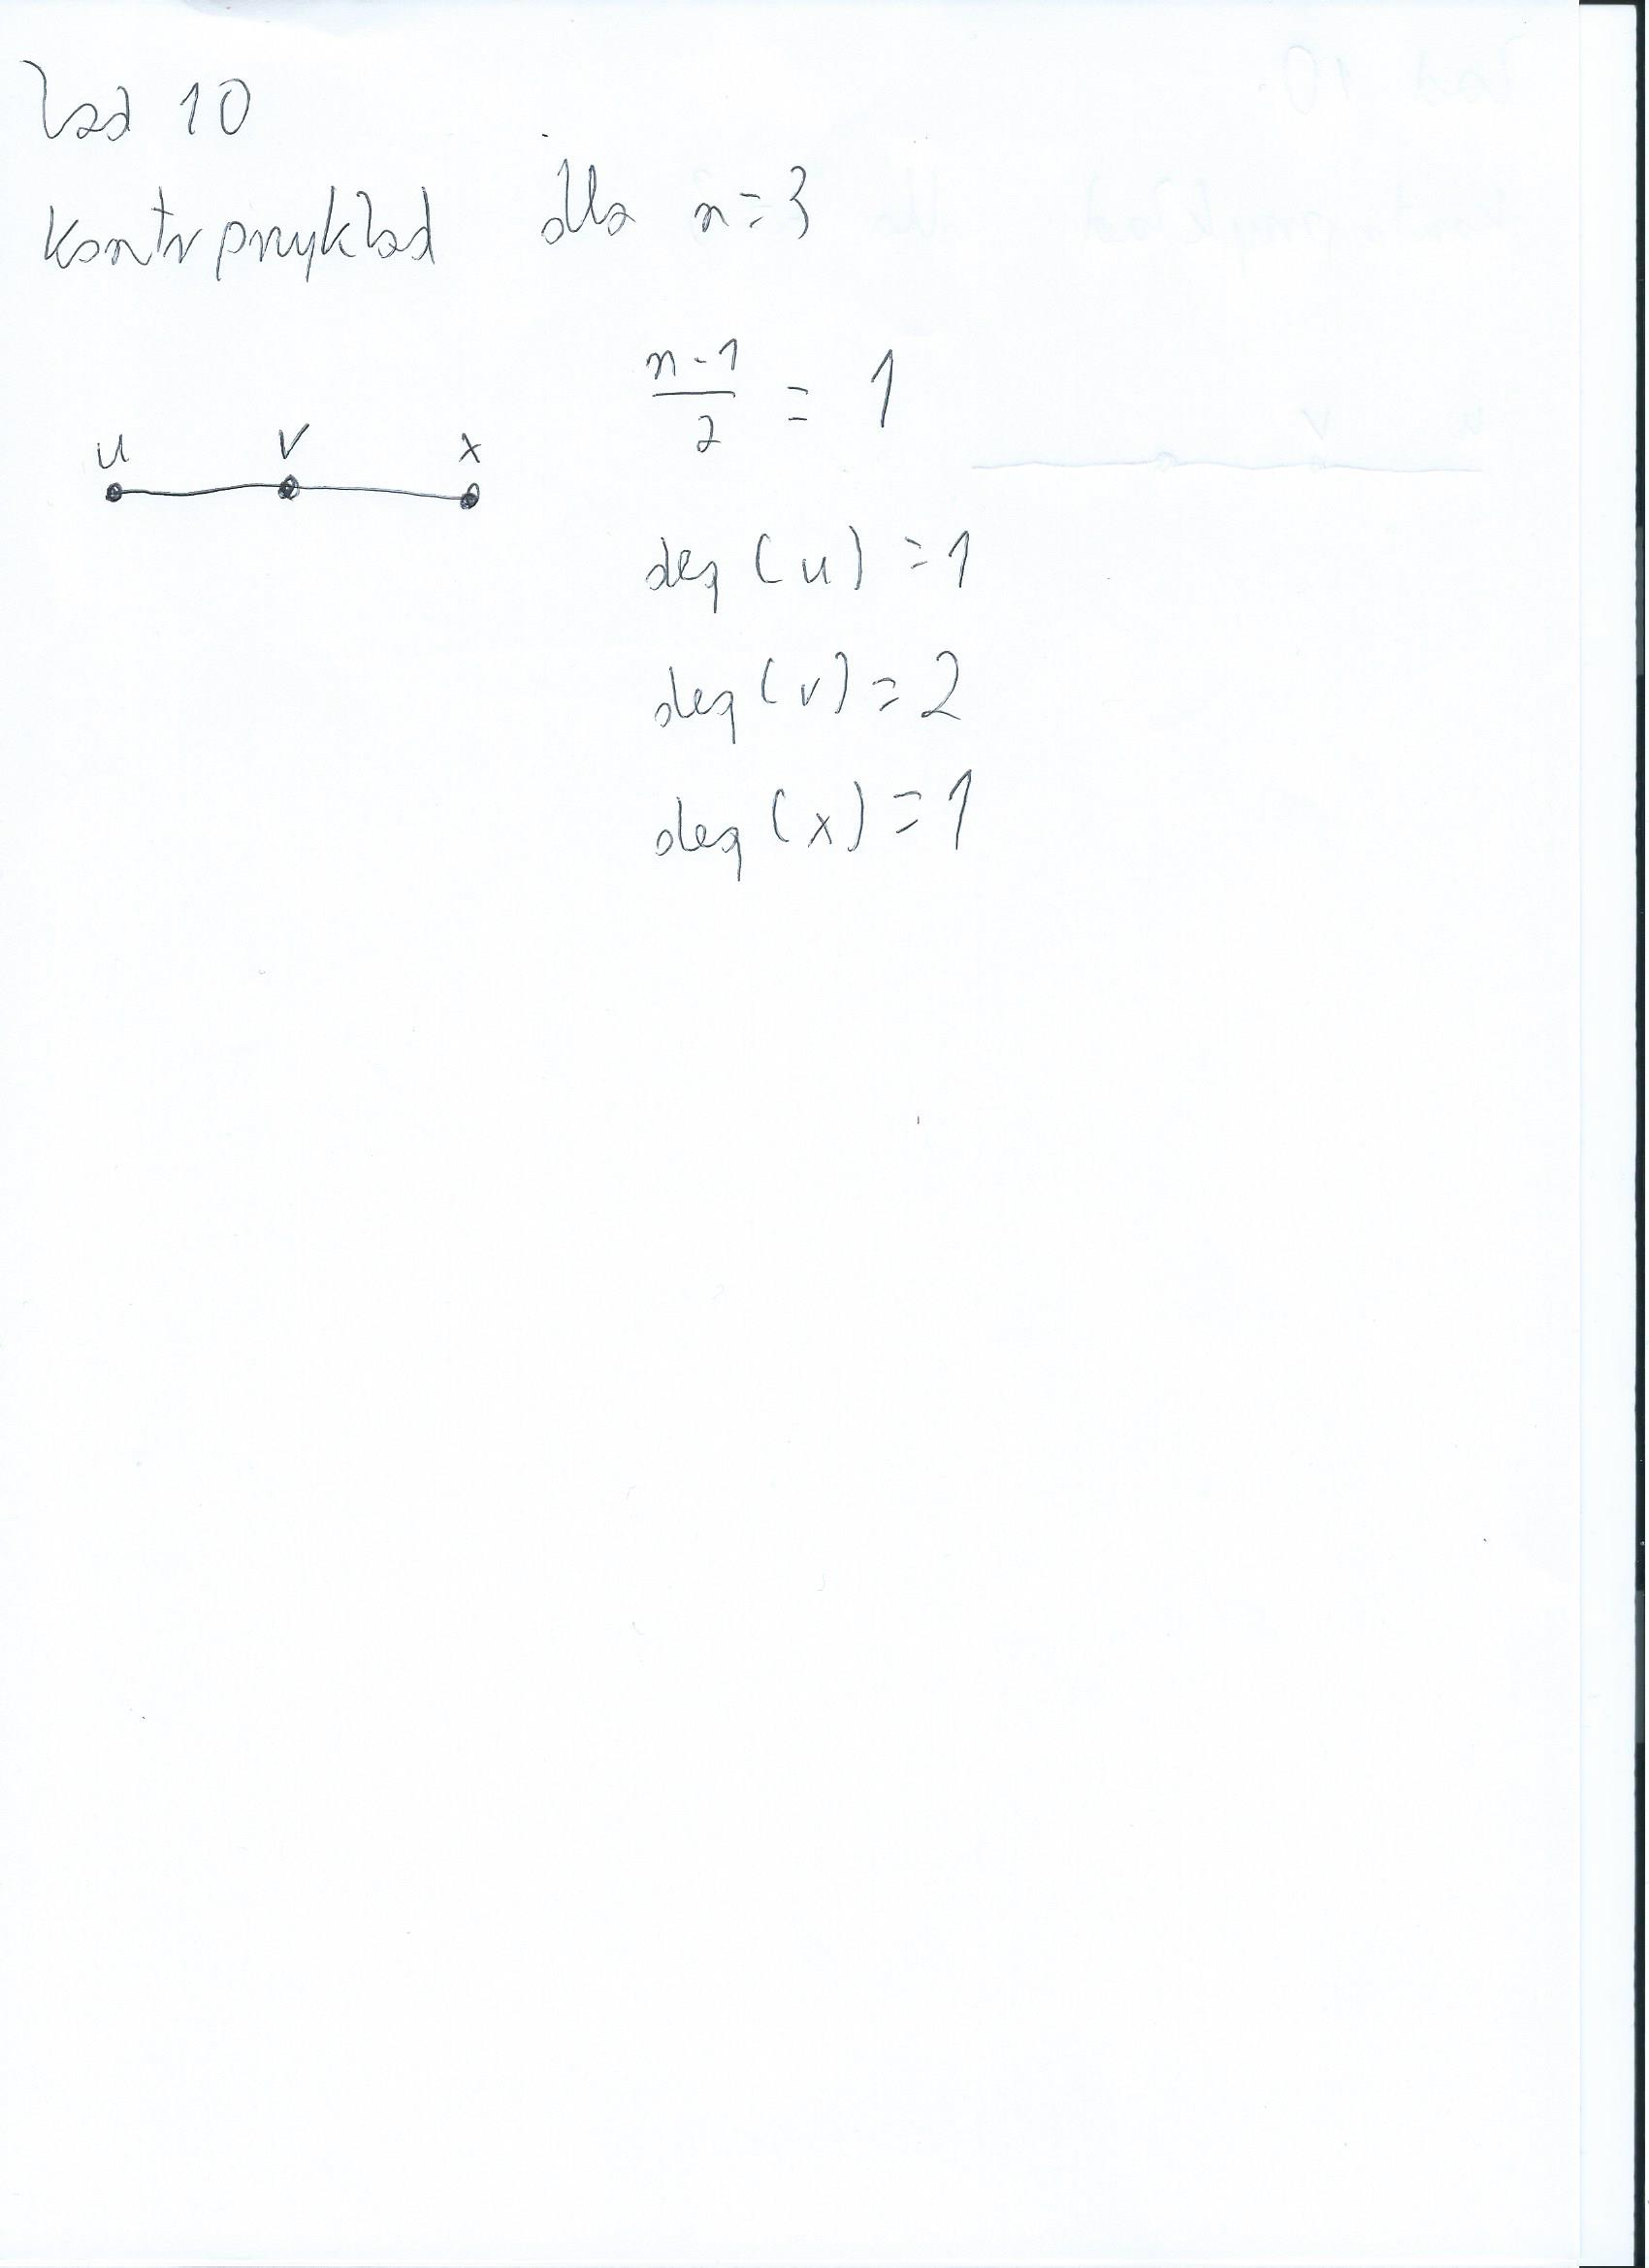 Zad 10
Kontrprzykład dla n=3
n-1/2 = 1
u v x
deg(u) = 1
deg(v) = 2
deg(x) = 1